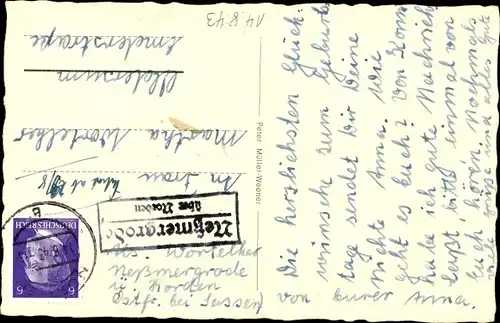 14.8.43
Die herzlichsten Glück
wünsche zum Geburts
tage sendet Dir Deine
Nichte Anna. Wie
geht es Euch? Von
habe ich gute Nachrich
Laßt bitte einmal von
hören. Nochmals
und alles Gute
von eurer Anna.
Peter Müller-Weener
DEUTSCHES REICH
6 6
Neßmergrode
über Norden
An Frau
Martha Wortelker
Oldersum
Emderstraße
Abs. Wortelker
Neßmergrode
ü. Norden
Ostfr. bei Sassen